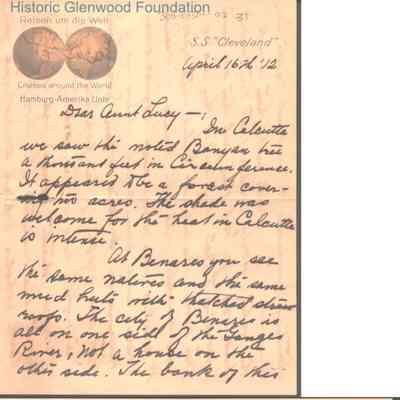 Historic Glenwood Foundation
Reisen um die Welt
Cruises around the World
Hamburg-Amerika Linie
S.S. "Cleveland"
April 16th '12
Dear Aunt Lucy —,
In Calcutta
we saw the noted Banyan tree
a thousant feet in Circumference.
It appeared to be a forest cover-
two acres. The shade was
welcome for the heat in Calcutta
is intense.
At Benares you see
the same natives and the same
mud huts with thatched straw
roofs. The city of Benares is
all on one side of the Ganges
River, not a house on the
other side. The bank of this